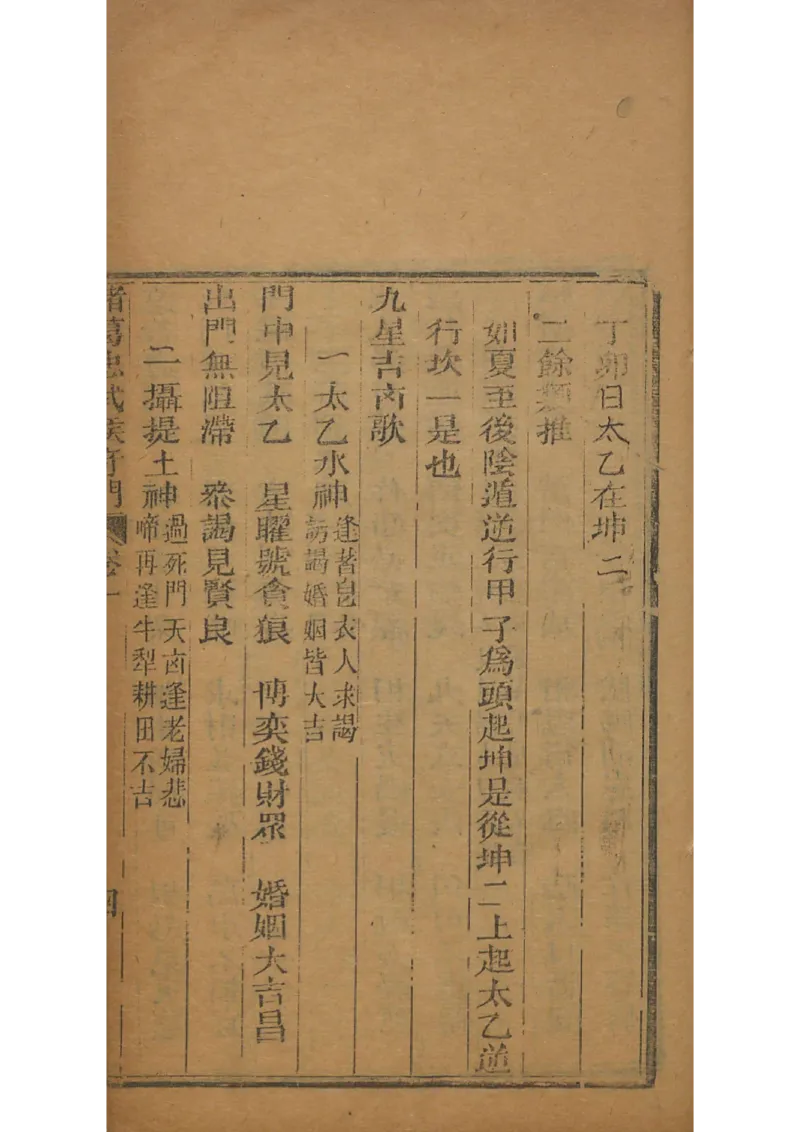 丁卯日太乙在坤二
二餘類推
如夏至後陰遁逆行甲子爲頭起坤是從坤二上起太乙逆
行坎一是也
九星吉凶歌
一太乙水神 逢著皂衣人求謁
訪謁婚姻皆大吉
門中見太乙 星曜號貪狼 博奕錢財眾 婚姻大吉昌
出門無阻滯 叅謁見賢良
二攝提土神 過死門天凶逢老婦悲
啼再逢牛犁耕田不吉
諸葛忠武侯奇門 卷一 四